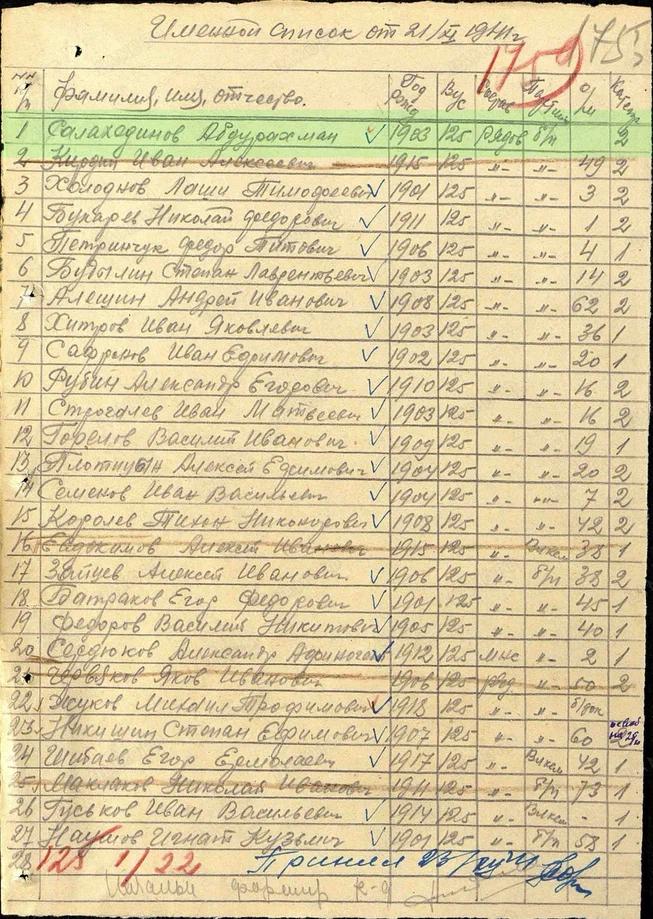 Именной список от 21/XI 1941г
1750 175
№№ п/п Фамилия, имя, отчество. Год рожд Вус Состав Партийн о/м Категор
1 Салахединов Абдурахман 1903 125 рядов б/п 2
2 Иван Алексеевич 1915 125 "- "- 49 2
3 Холоднов Лаши Тимофеевич 1901 125 "- "- 3 2
4 Бухарев Николай Федорович 1911 125 "- "- 1 2
5 Петринчук Федор Титович 1906 125 "- "- 4 1
6 Будылин Степан Лаврентьевич 1903 125 "- "- 14 2
7 Алешин Андрей Иванович 1908 125 "- "- 62 2
8 Хитров Иван Яковлевич 1903 125 "- "- 36 1
9 Сафронов Иван Ефимович 1902 125 "- "- 20 1
10 Рубин Александр Егорович 1910 125 "- "- 16 2
11 Строгалев Иван Матвеевич 1903 125 "- "- 16 2
12 Горелов Василий Иванович 1909 125 "- "- 19 1
13 Плотицын Алексей Ефимович 1904 125 "- "- 20 2
14 Семенов Иван Васильевич 1904 125 "- "- 7 2
15 Королев Тихон Никонорович 1908 125 "- "- 42 2
16 Евдокимов Алексей Иванович 1915 125 "- Влксм 38 1
17 Зайцев Алексей Иванович 1906 125 "- б/п 38 2
18 Батраков Егор Федорович 1901 125 "- "- 45 1
19 Федоров Василий Никитович 1905 125 "- "- 40 1
20 Сердюков Александр Афиноген 1912 125 мнс "- 2 1
21 Червяков Яков Иванович 1906 125 ряд "- 50 2
22 Жуков Михаил Трофимович 1918 125 "- "- б/док
23 Никишин Степан Ефимович 1907 125 "- "- 60
24 Шибаев Егор Ермолаевич 1917 125 "- Влксм 42 1
25 Маклаков Николай Иванович 1911 125 "- б/п 73 1
26 Гуськов Иван Васильевич 1914 125 "- Влксм - 1
27 Наумов Игнат Кузьмич 1901 125 "- б/п 58 1
28 125 1/22 Принял 23